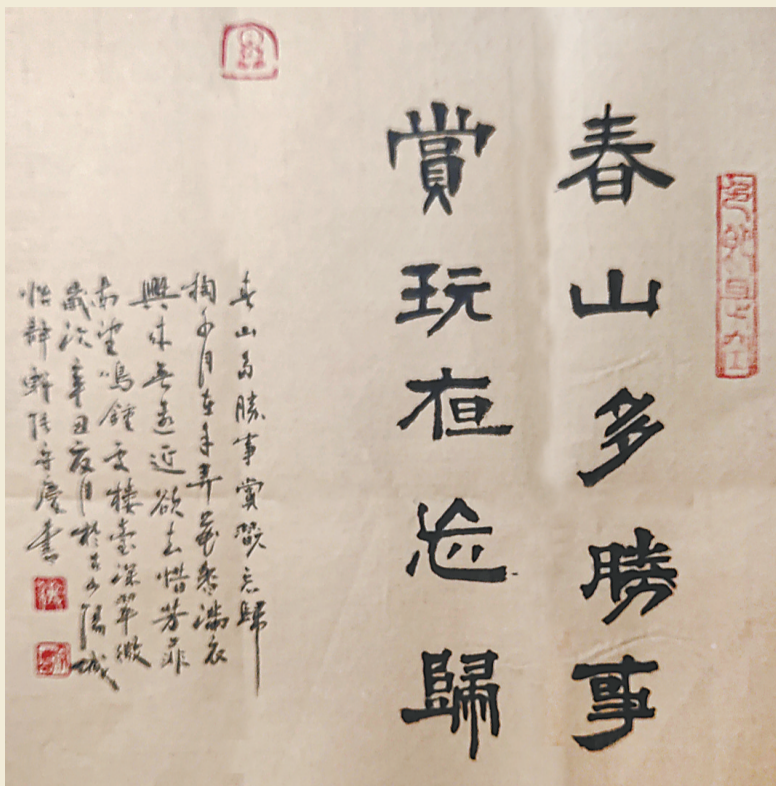 春山多勝事
賞玩夜忘歸
春山多勝事賞翫忘歸
掬水月在手弄花香滿衣
興來無遠近欲去惜芳菲
南望鳴鐘處樓臺深翠微
歲次辛丑夏月於古陽城
怡靜軒守慶書